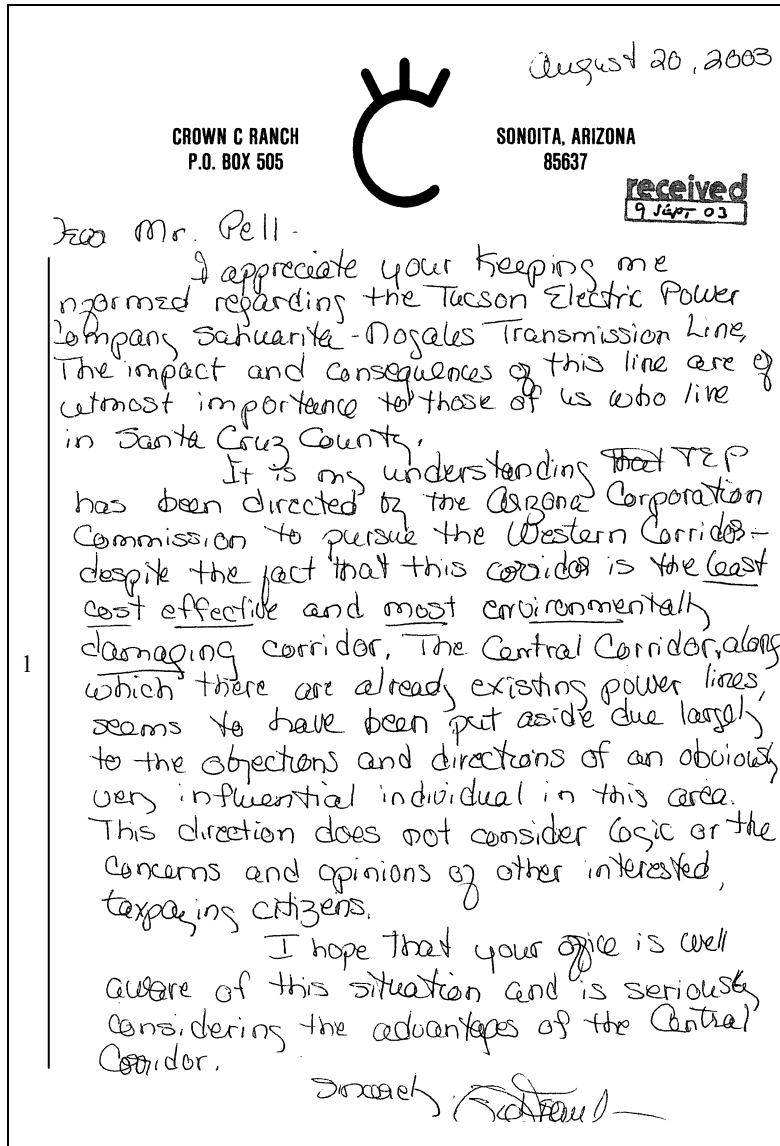 August 20, 2003
CROWN C RANCH
P.O. BOX 505
C
SONOITA, ARIZONA
85637
received
9 SEPT 03
Dear Mr. Pell -
I appreciate your keeping me
nformed regarding the Tucson Electric Power
Company Sahuarita-Nogales Transmission Line.
The impact and consequences of this line are of
utmost importance to those of us who live
in Santa Cruz County.
It is my understanding that TEP
has been directed by the Arizona Corporation
Commission to pursue the Western Corridor -
despite the fact that this corridor is the least
cost effective and most environmentally
damaging corridor. The Central Corridor, along
1
which there are already existing power lines,
seems to have been put aside due largely
to the objections and directions of an obviously
very influential individual in this area.
This direction does not consider logic or the
concerns and opinions of other interested,
taxpaying citizens.
I hope that your office is well
aware of this situation and is seriously
considering the advantages of the Central
Corridor.
Sincerely,